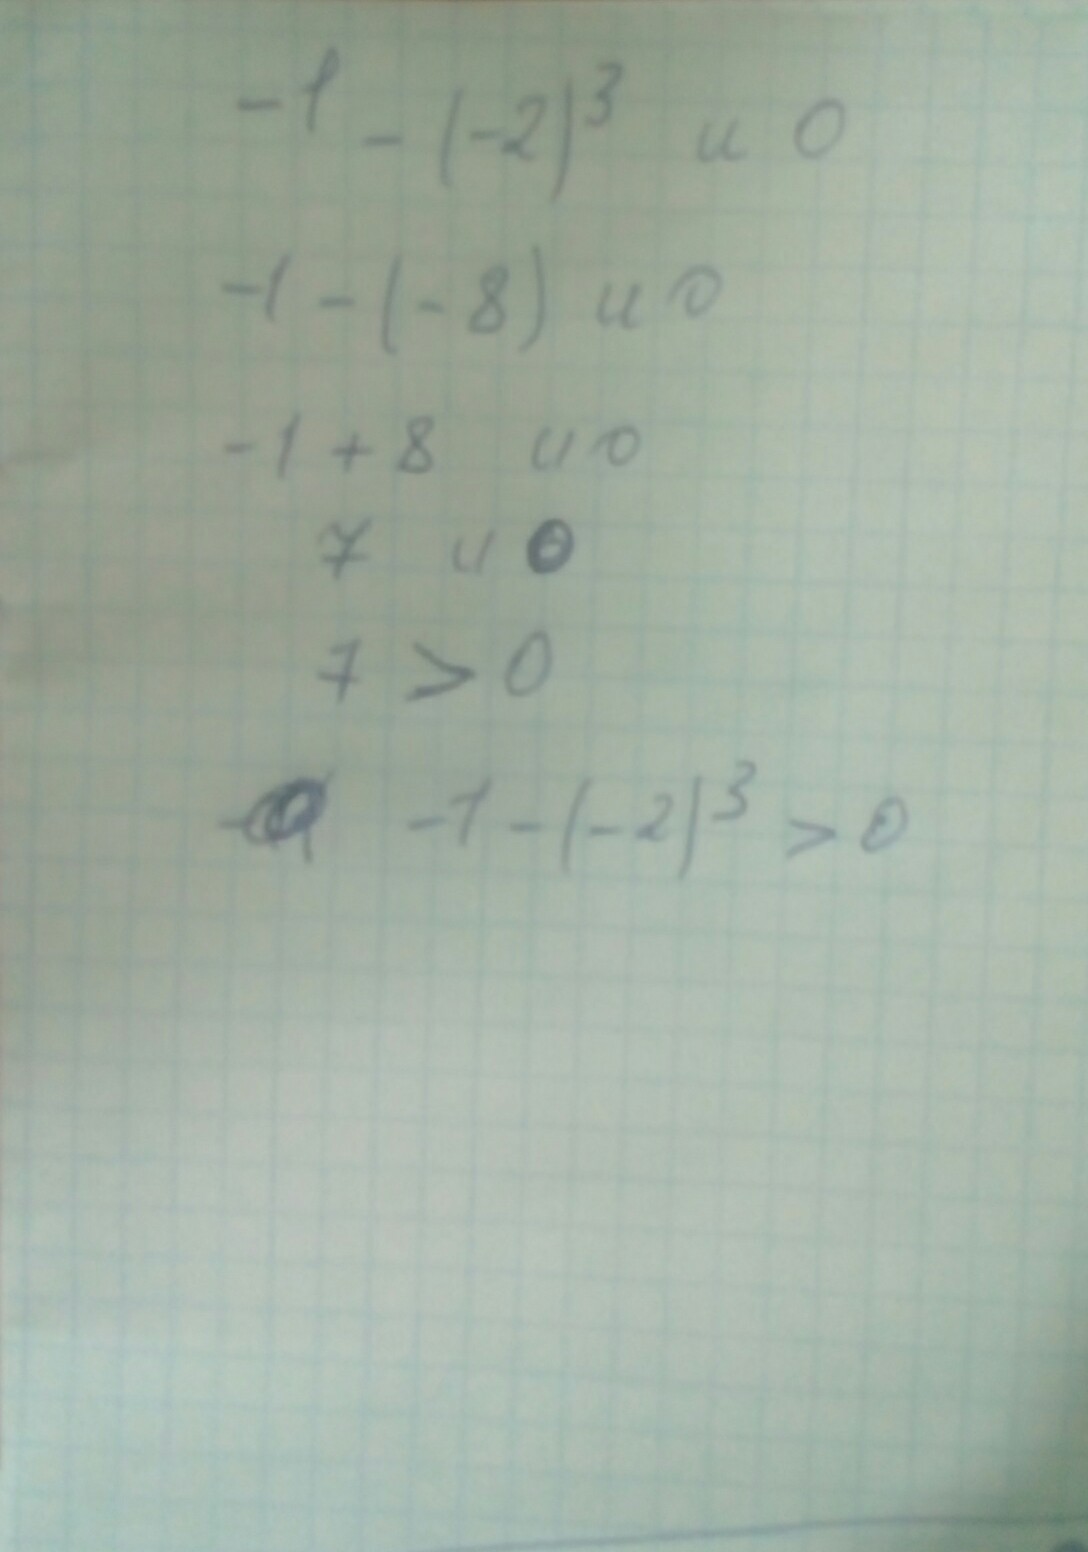 -1 - (-2)³ и 0
-1 - (-8) и 0
-1 + 8 и 0
7 и 0
7 > 0
-1 - (-2)³ > 0